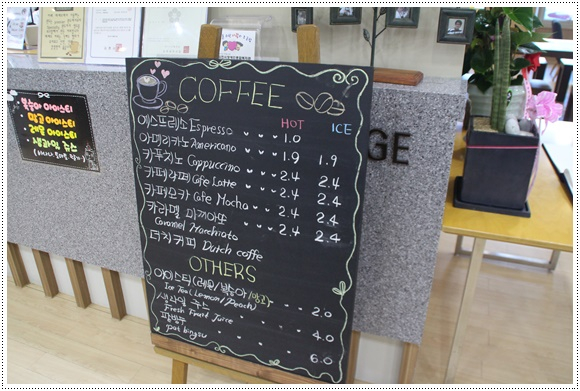 COFFEE
HOT ICE
에스프레소 Espresso 1.0
아메리카노 Americano 1.9 1.9
카푸치노 Cappuccino 2.4 2.4
카페라떼 Cafe Latte 2.4 2.4
카페모카 Cafe Mocha 2.4 2.4
카라멜 마끼아또 2.4 2.4
Caramel Macchiato
더치커피 Dutch coffe
OTHERS
아이스티(레몬/복숭아/망고) 2.0
Ice Tea (Lemon/Peach)
생과일 쥬스 4.0
Fresh Fruit Juice
팥빙수 6.0
pat bingsu
복숭아 아이스티
망고 아이스티
레몬 아이스티
생과일 쥬스
GE